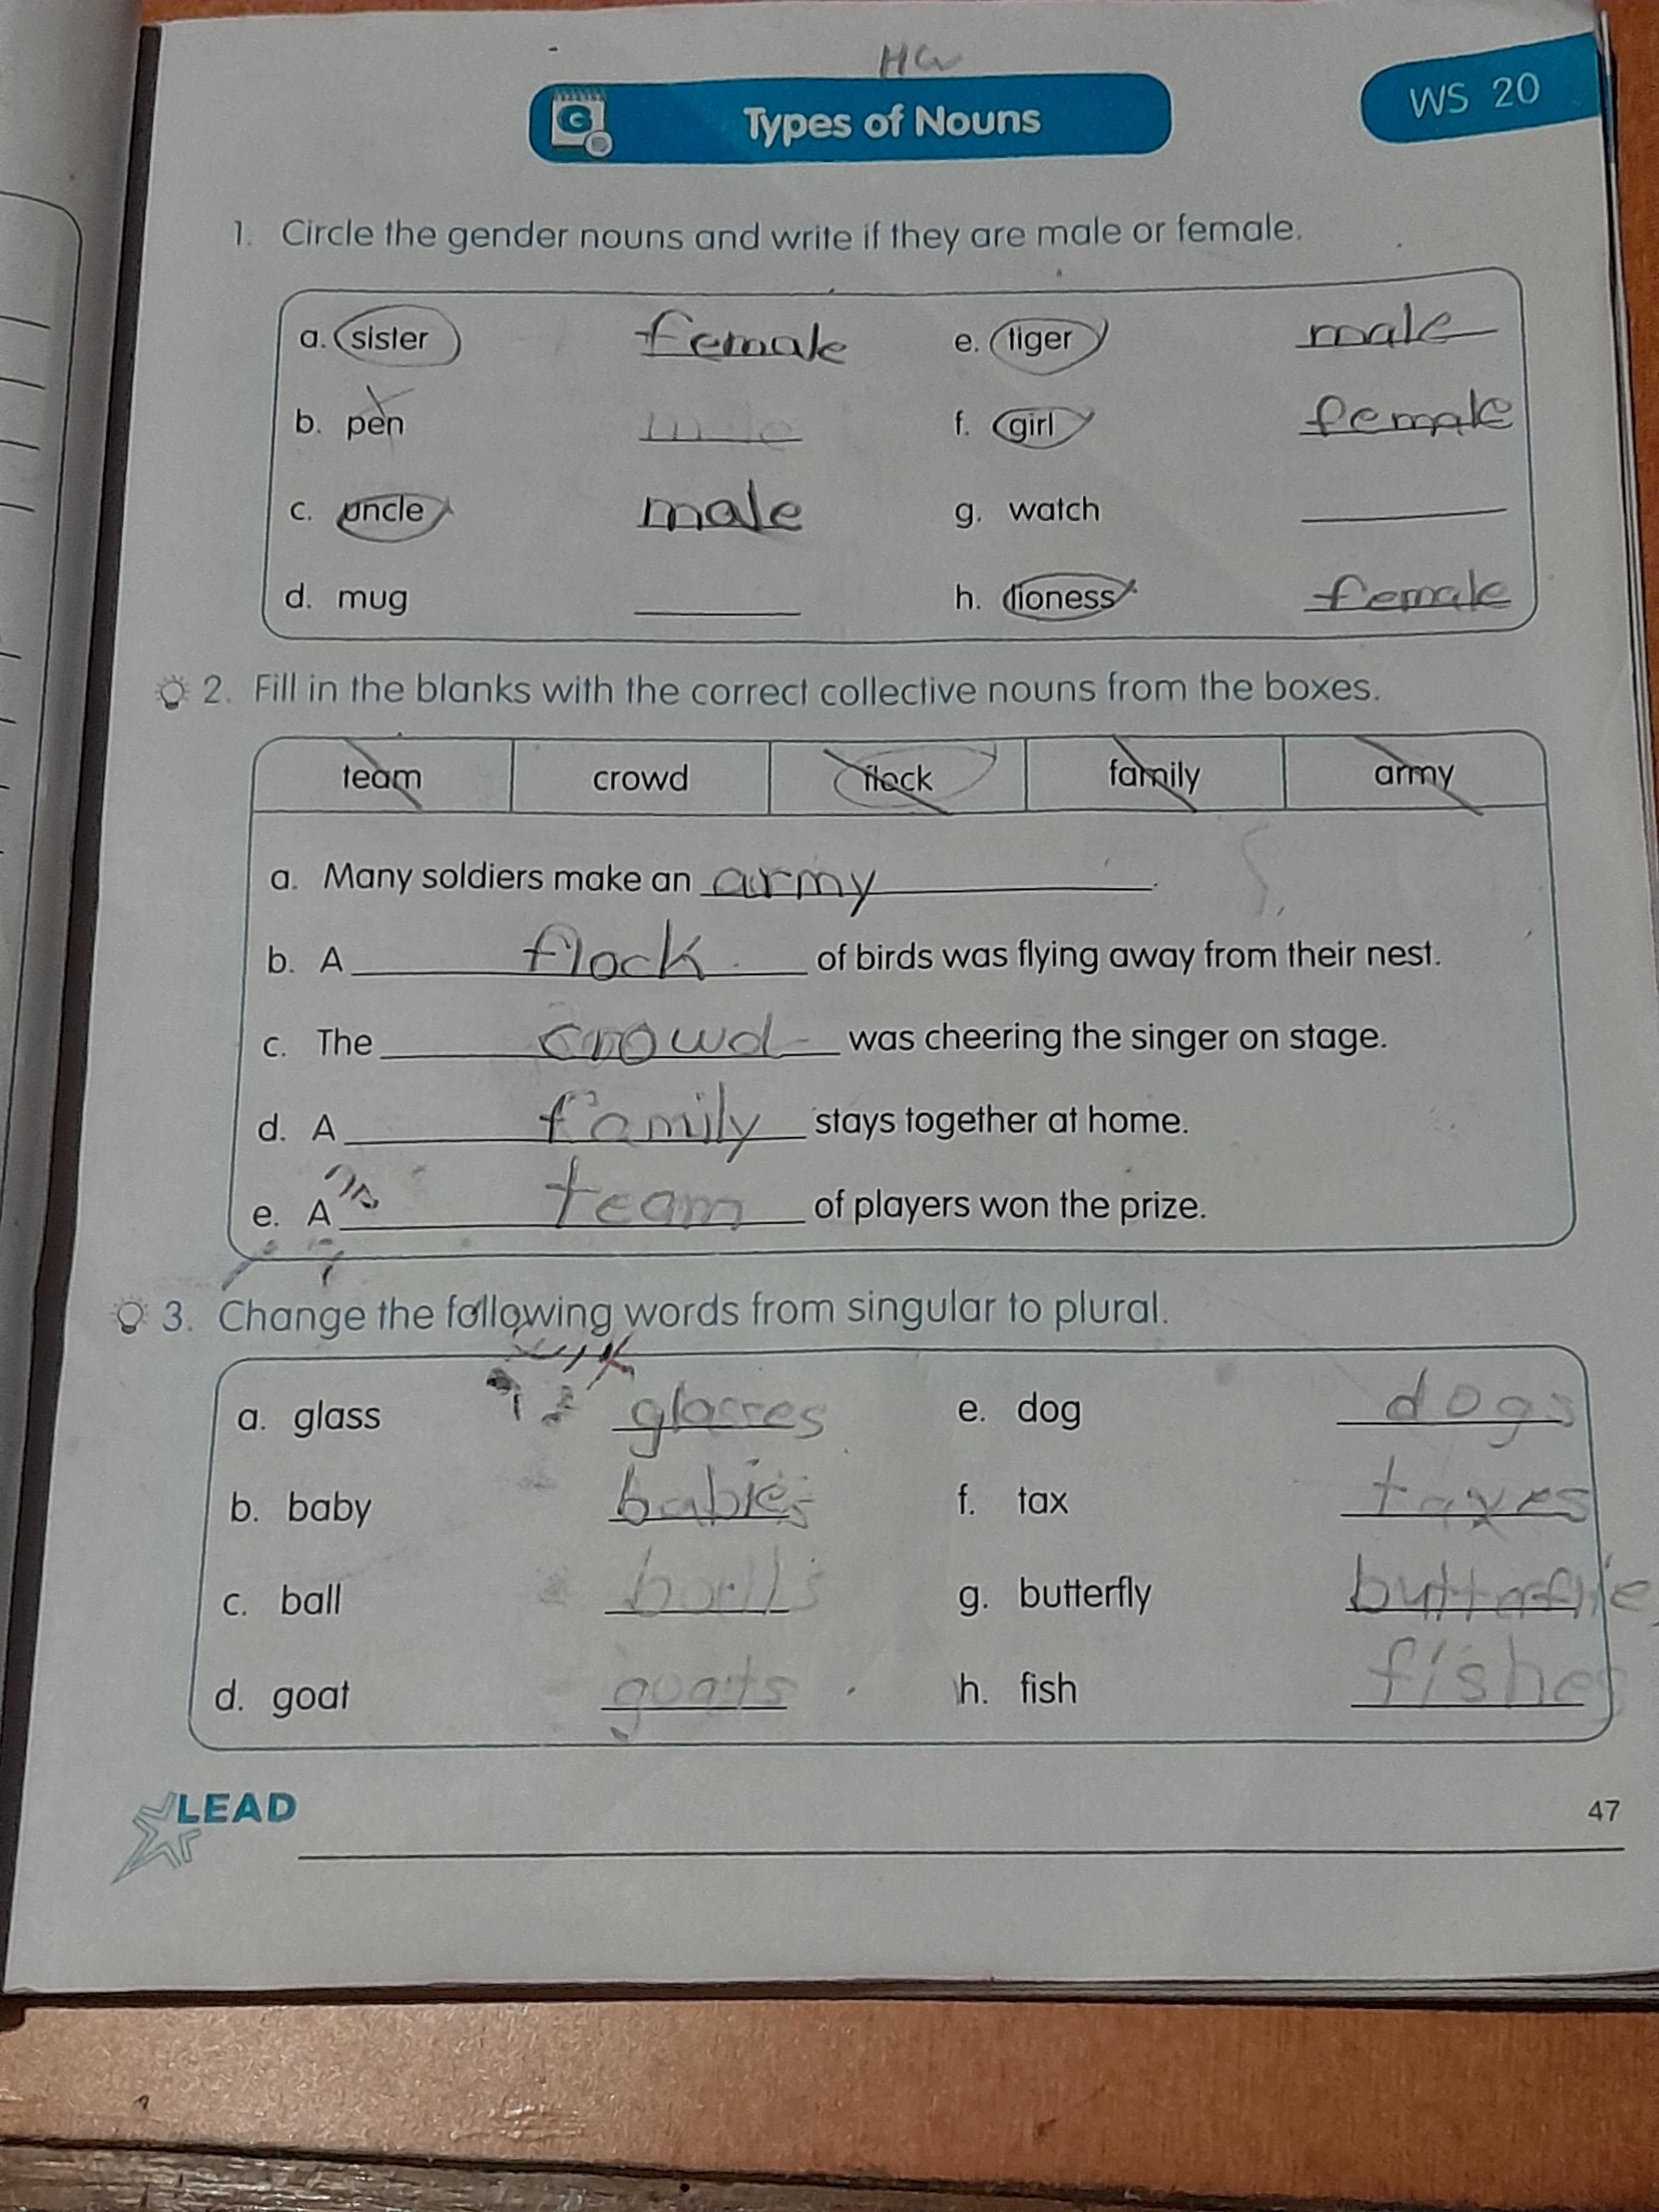 HW
Types of Nouns
WS 20
1. Circle the gender nouns and write if they are male or female.
a. sister female e. tiger male
b. pen f. girl female
c. uncle male g. watch
d. mug h. lioness female
2. Fill in the blanks with the correct collective nouns from the boxes.
team crowd flock family army
a. Many soldiers make an army.
b. A flock of birds was flying away from their nest.
c. The crowd was cheering the singer on stage.
d. A family stays together at home.
e. A team of players won the prize.
3. Change the following words from singular to plural.
a. glass glasses e. dog dogs
b. baby babies f. tax taxes
c. ball balls g. butterfly
d. goat goats h. fish fishes
LEAD
47